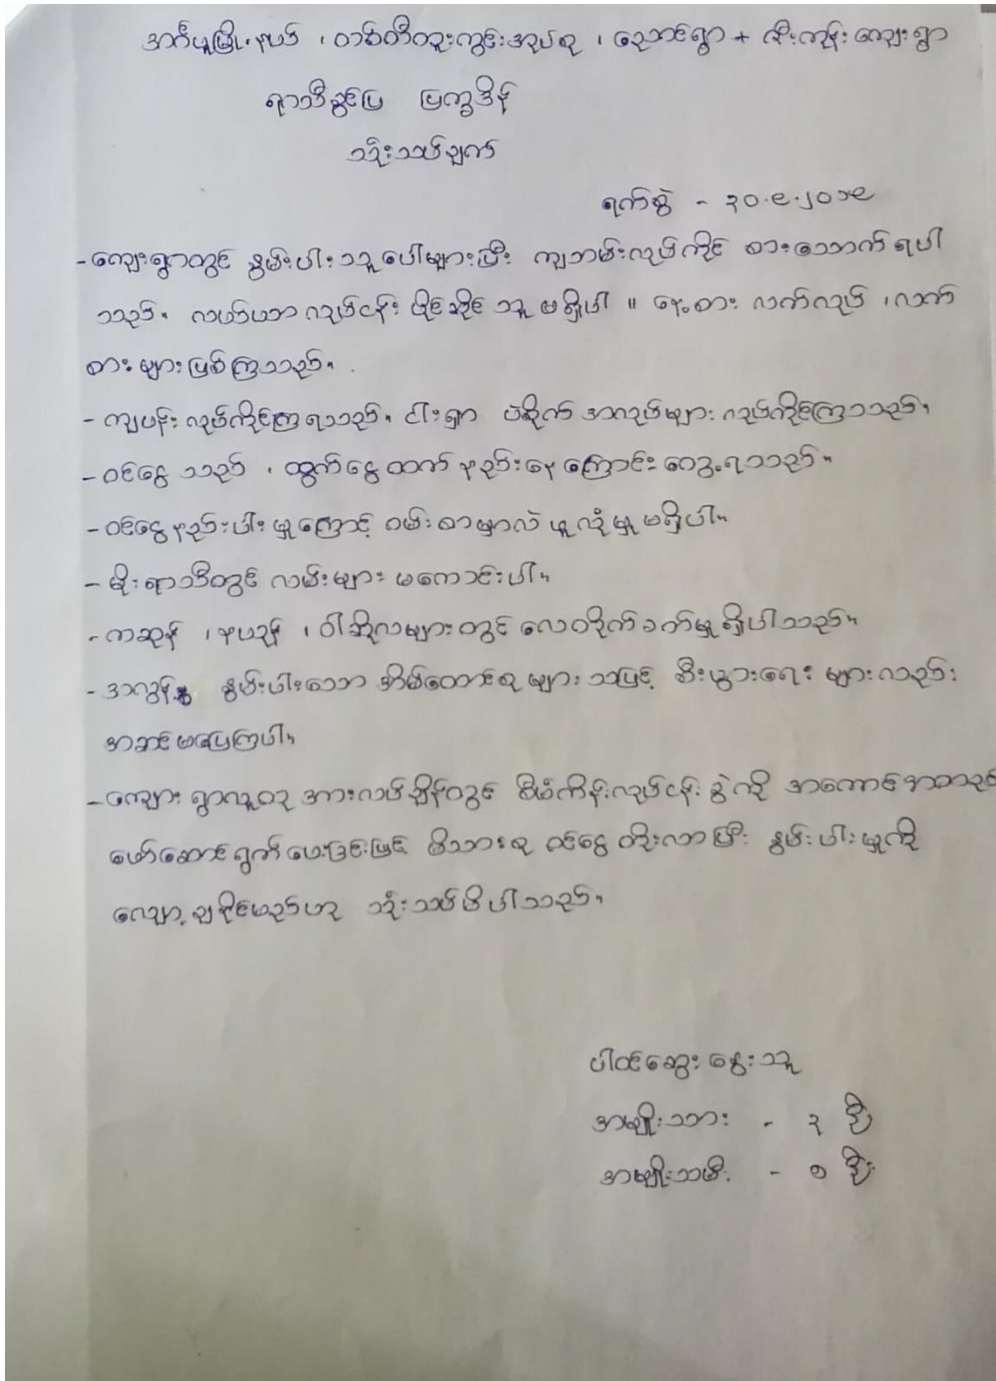 အင်္ဂပူမြို့နယ် ၊ တစ်တီတူးကွင်းအုပ်စု ၊ ညောင်ရွာ + ဇီးကုန်းကျေးရွာ
ရာသီခွင်ပြ ပြက္ခဒိန်
သုံးသပ်ချက်
ရက်စွဲ - ၃၀.၉.၂၀၁၉
- ကျေးရွာတွင် နွမ်းပါးသူပေါများပြီး ကျဘမ်းလုပ်ကိုင် စားသောက်ရပါ
သည်။ လယ်ယာလုပ်ငန်း ပိုင်ဆိုင်သူ မရှိပါ ။ နေ့စား လက်လုပ် ၊ လက်
စားများဖြစ်ကြသည်။
- ကျပန်းလုပ်ကိုင်ကြရသည်။ ငါးရှာ ပဲစိုက် အလုပ်များ လုပ်ကိုင်ကြသည်။
- ဝင်ငွေ သည် ၊ ထွက်ငွေထက် နည်းနေကြောင်း တွေ့ရသည်။
- ဝင်ငွေနည်းပါးမှုကြောင့် ဝမ်းစာမှာလဲ ဖူလုံမှု မရှိပါ။
- မိုးရာသီတွင် လမ်းများ မကောင်းပါ။
- ကဆုန် ၊ နယုန် ၊ ဝါဆိုလများတွင် လေတိုက်ခတ်မှုရှိပါသည်။
- အလွန် နွမ်းပါးသော အိမ်ထောင်စုများသဖြင့် စီးပွားရေး များလည်း
အဆင်မပြေကြပါ။
- ကျေားရွာလူထု အားလပ်ချိန်တွင် စီမံကိန်းလုပ်ငန်းခွဲကို အကောင်အထည်
ဖော်ဆောင်ရွက်ပေးခြင်းဖြင့် မိသားစု ဝင်ငွေ တိုးလာပြီး နွမ်းပါးမှုကို
လျော့ချနိုင်မည်ဟု သုံးသပ်မိပါသည်။
ပါဝင်ဆွေးနွေးသူ
အမျိုးသား - ၃ ဦး
အမျိုးသမီး - ၈ ဦး